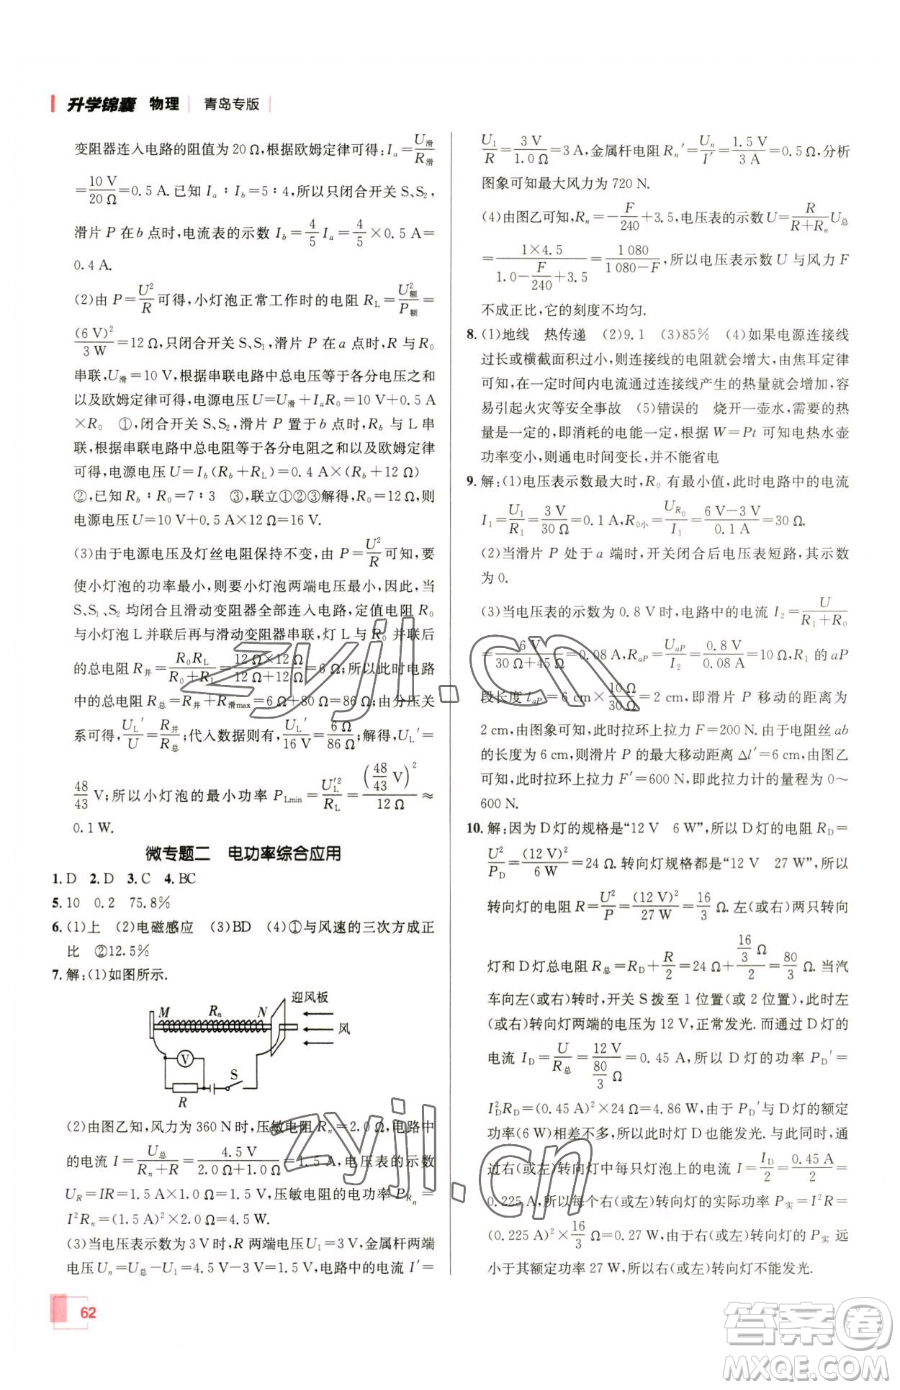 升学锦囊 物理 青岛专版
变阻器连入电路的阻值为20 Ω,根据欧姆定律可得:Iₐ=U滑/R滑
=10 V/20 Ω=0.5 A.已知 Iₐ∶I_b=5∶4,所以只闭合开关 S、S₂,
滑片 P 在 b 点时,电流表的示数 I_b=4/5 Iₐ=4/5×0.5 A=
0.4 A.
(2)由 P=U²/R 可得,小灯泡正常工作时的电阻 R_L=U额²/P额=
(6 V)²/3 W=12 Ω,只闭合开关 S、S₁,滑片 P 在 a 点时,R 与 R₀
串联,U滑=10 V,根据串联电路中总电压等于各分电压之和
以及欧姆定律可得,电源电压 U=U滑+IₐR₀=10 V+0.5 A
×R₀ ①,只闭合开关 S、S₂,滑片 P 置于 b 点时,R_b 与 L 串
联,根据串联电路中总电阻等于各分电阻之和以及欧姆定律
可得,电源电压 U=I_b(R_b+R_L)=0.4 A×(R_b+12 Ω) ②,
又已知 R_b∶R₀=7∶3 ③,联立①②③解得,R₀=12 Ω,则
电源电压 U=10 V+0.5 A×12 Ω=16 V.
(3)由于电源电压及灯丝电阻保持不变,由 P=U²/R 可知,要
使小灯泡的功率最小,则要小灯泡两端电压最小,此时开关
S、S₁、S₂ 均闭合且滑动变阻器全部连入电路,定值电阻 R₀
与小灯泡并联后再与滑动变阻器串联,灯 L 与 R₀ 并联后
的总电阻 R并=R₀R_L/(R₀+R_L)=12 Ω×12 Ω/(12 Ω+12 Ω)=6 Ω;所以此时电路
中的总电阻 R总=R并+R滑max=6 Ω+80 Ω=86 Ω;由分压关
系可得,U_L′/U=R并/R总;代入数据则有,U_L′/16 V=6 Ω/86 Ω;解得,U_L′=
48/43 V;所以小灯泡的最小功率 P_Lmin=U_L′²/R_L=(48/43 V)²/12 Ω≈
0.1 W.
微专题二 电功率综合应用
1.D 2.D 3.C 4.BC
5.10 0.2 75.8%
6.(1)上 (2)电磁感应 (3)BD (4)①与风速的三次方成正
比 ②12.5%
7.解:(1)如图所示.
迎风板
M Rₙ N
风
V
S
R
(2)由图乙知,风力为 360 N 时,压敏电阻 Rₙ=2.0 Ω,电路中
的电流 I=U/(Rₙ+R)=4.5 V/(2.0 Ω+1.0 Ω)=1.5 A,电压表的示数
U_R=IR=1.5 A×1.0 Ω=1.5 V,压敏电阻的电功率 P_Rₙ=
I²Rₙ=(1.5 A)²×2.0 Ω=4.5 W.
(3)当电压表示数为 3 V 时,R 两端电压 U₁=3 V,金属杆两
端电压 Uₙ=U总-U₁=4.5 V-3 V=1.5 V,电路中的电流 I′=
U₁/R=3 V/1.0 Ω=3 A,金属杆电阻 Rₙ′=Uₙ/I′=1.5 V/3 A=0.5 Ω,分析
图象可知最大风力为 720 N.
(4)由图乙可知,Rₙ=-F/240+3.5,电压表的示数 U=R/(R+Rₙ)U总
=1×4.5/(1.0-F/240+3.5)=1 080/(1 080-F),所以电压表示数 U 与风力 F
不成正比,它的刻度不均匀.
8.(1)地线 热传递 (2)9.1 (3)85% (4)如果电源连接线
过长或横截面积过小,则连接线的电阻就会增大,由焦耳定律
可知,在一定时间内电流通过连接线产生的热量就会增大,容
易引起火灾等安全事故 (5)错误的 烧开一壶水,需要的热
量一定,即消耗的电能一定,根据 W=Pt 可知电热水壶
功率变小,则通电时间变长,并不能省电
9.解:(1)电压表示数最大时,R₀ 有最小值,此时电路中的电流
I₁=U₁/R₁=3 V/30 Ω=0.1 A,R₀小=U_R₀/I₁=(6 V-3 V)/0.1 A=30 Ω.
(2)当滑片 P 处于 a 端时,开关闭合后电压表短路,其示数
为 0.
(3)当电压表的示数为 0.8 V 时,电路中的电流 I₂=U/(R₁+R₀)
=6 V/(30 Ω+45 Ω)=0.08 A,R_aP=U_aP/I₂=0.8 V/0.08 A=10 Ω,R₁ 的 aP
段长度 l_aP=6 cm×10 Ω/30 Ω=2 cm,即滑片 P 移动的距离为
2 cm,由图象可知,此时拉环上拉力 F=200 N.由于电阻丝 ab
的长度为 6 cm,所以滑片 P 的最大移动距离 Δl′=6 cm;由图乙
可知,此时拉环上拉力 F′=600 N,即此拉力计的量程为 0~
600 N.
10.解:因为 D 灯的规格是“12 V 6 W”,所以 D 灯的电阻 R_D=
U²/P_D=(12 V)²/6 W=24 Ω.转向灯规格都是“12 V 27 W”,所以转
向灯的电阻 R=U²/P=(12 V)²/27 W=16/3 Ω.左(或右)两转向
灯和 D 灯总电阻 R总=R_D+R/2=24 Ω+(16/3 Ω)/2=80/3 Ω.当汽
车向左(或右)转时,开关 S 拨至 1 位置(或 2 位置),左
(或右)转向灯两端的电压为 12 V,正常发光.而通过 D 灯
的电流 I_D=U/R总=12 V/(80/3 Ω)=0.45 A,所以 D 灯的功率 P_D′=
I_D²R_D=(0.45 A)²×24 Ω=4.86 W,由于 P_D′与 D 灯的额定
功率(6 W)相差不多,所以灯 D 能发光.与此同时,通
过右(或左)转向每只灯泡上的电流 I=I_D/2=0.45 A/2=
0.225 A,所以每个右(或左)转向灯的实际功率 P实=I²R=
(0.225 A)²×16/3 Ω=0.27 W.由于右(或左)转向灯的 P实 远
远小于其额定功率 27 W,所以右(或左)转向灯不能发光.
62
zyjl.cn
zyjl.cn
答案圈
MXQE.COM